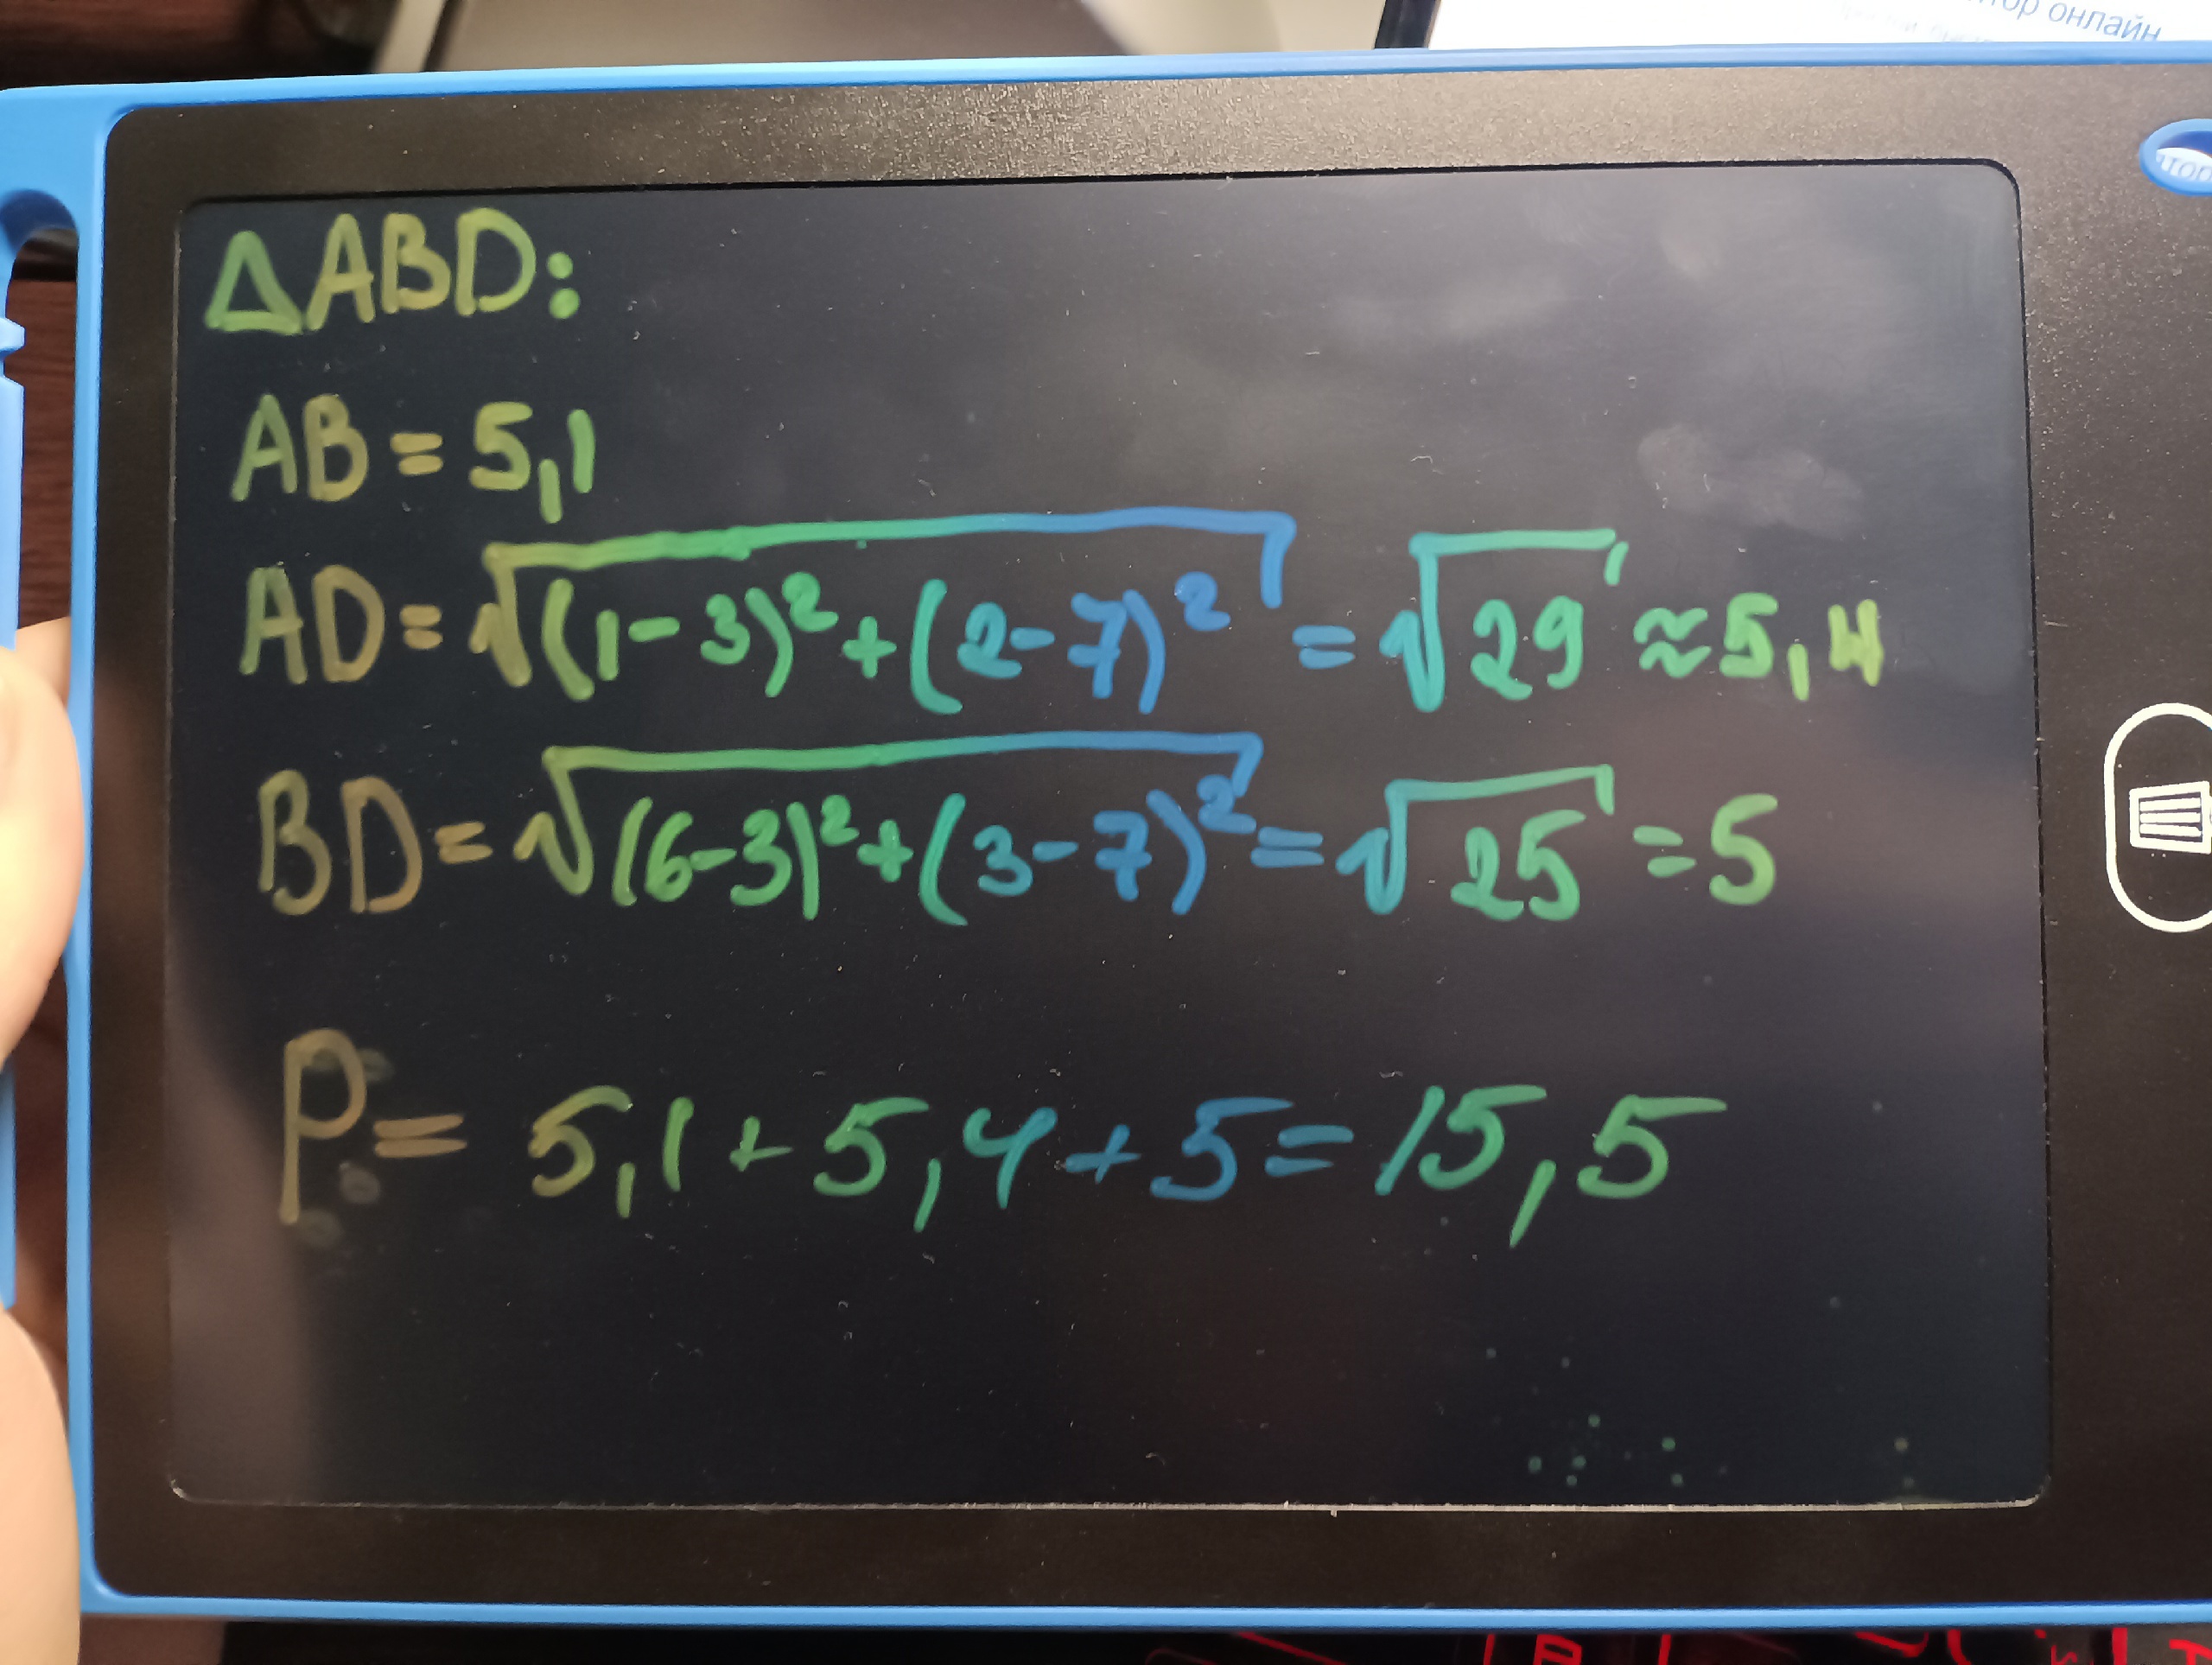 тор онлайн
тор
ΔABD:
AB = 5,1
AD = √(1-3)²+(2-7)² = √29 ≈ 5,4
BD = √(6-3)²+(3-7)² = √25 = 5
P = 5,1 + 5,4 + 5 = 15,5